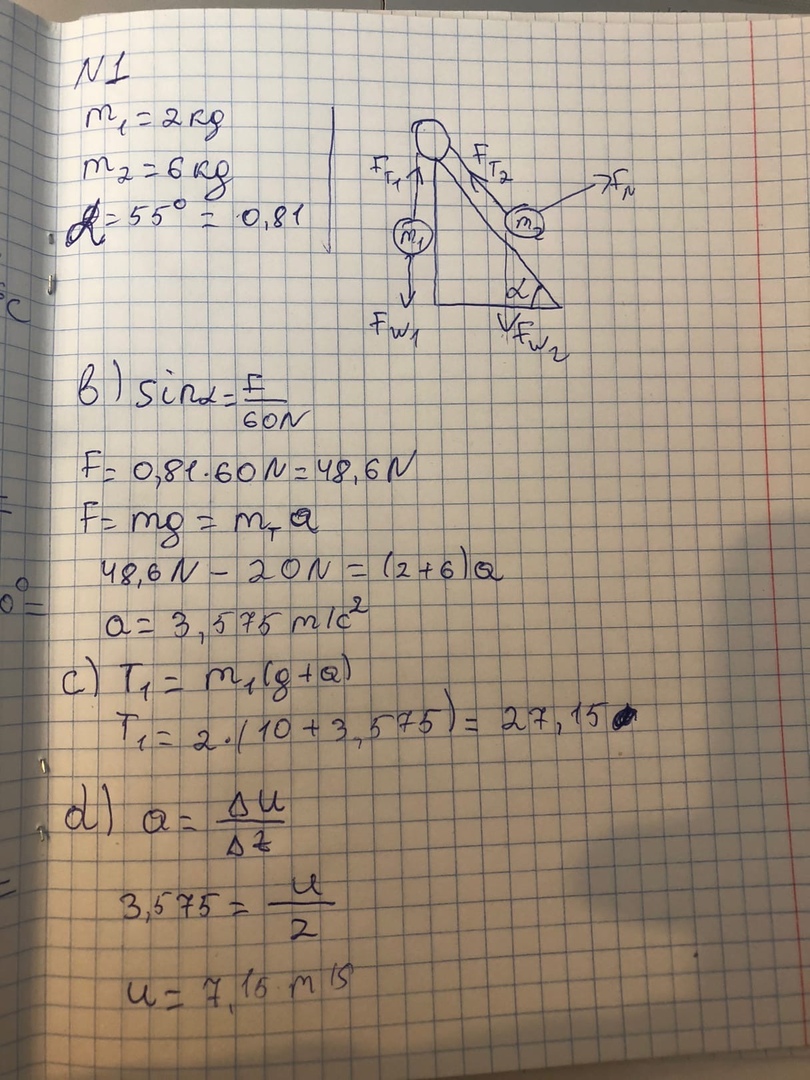 N1
m₁ = 2 kg
m₂ = 6 kg
α = 55° = 0,81
F_T₁
F_T₂
F_N
m₁
m₂
α
F_W₁
F_W₂
b) sinα = F/60N
F = 0,81 · 60N = 48,6N
F = mg = m_T a
48,6N − 20N = (2+6)a
a = 3,575 m/c²
c) T₁ = m₁(g+a)
T₁ = 2·(10+3,575) = 27,15
d) a = Δu/Δt
3,575 = u/2
u = 7,15 m/s
c
0° =